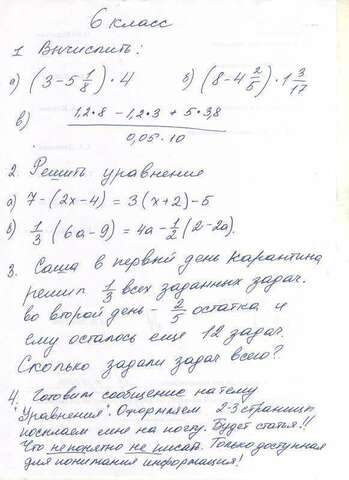 6 класс
1. Вычислить:
а) (3-5 1/8)·4 б) (8-4 2/5)·1 3/17
в) (1,2·8 - 1,2·3 + 5·3,8)/(0,05·10)
2. Решить уравнение
а) 7-(2x-4) = 3(x+2)-5
б) 1/3 (6a-9) = 4a - 1/2 (2-2a).
3. Саша в первый день карантина
решил 1/3 всех заданных задач.
во второй день - 2/5 остатка и
ему осталось ещё 12 задач.
Сколько задали задач всего?
4. Готовим сообщение на тему
"Уравнения". Оформляем 2-3 страницы
посылаем мне на почту. Будет статья!!
Что непонятно не писать. Только доступная
для понимания информация!